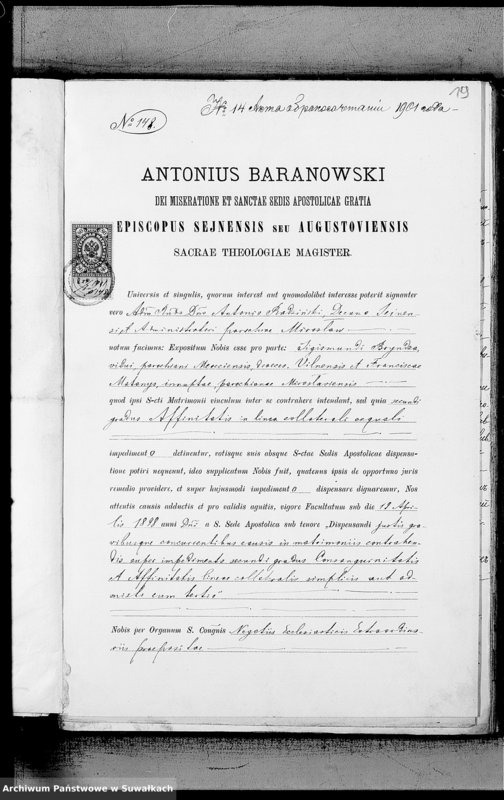 19
№ 14 Акта бракосочетанія 1901 года –
№ 148.
ANTONIUS BARANOWSKI
DEI MISERATIONE ET SANCTAE SEDIS APOSTOLICAE GRATIA
EPISCOPUS SEJNENSIS SEU AUGUSTOVIENSIS
SACRAE THEOLOGIAE MAGISTER.
Universis et singulis, quorum interest aut quomodolibet interesse poterit signanter
vero Antonio Decano Sejnen-
si, et Administratori parochiae Miroslaw
notum facimus: Expositum Nobis esse pro parte: Sigismundi
vidui, parochiani Mereciensis, dioeces. Vilnensis et Franciscae
innuptae, parochianae Miroslaviensis
quod ipsi S-cti Matrimonii vinculum inter se contrahere intendant, sed quia secundi
gradus Affinitatis in linea collaterali aequali
impedimento detinentur, votisque suis absque S-ctae Sedis Apostolicae dispensa-
tione potiri nequeunt, ideo supplicatum Nobis fuit, quatenus ipsis de opportuno juris
remedio providere, et super hujusmodi impedimento dispensare dignaremur, Nos
attentis causis adductis et pro validis agnitis, vigore Facultatum sub die 12 Apri-
lis 1898 anni Dni a S. Sede Apostolica sub tenore „Dispensandi justis gra-
vibusque concurrentibus causis in matrimoniis contrahen-
dis super impedimento secundi gradus Consanguinitatis
et Affinitatis lineae collateralis simplicis aut ad-
mixti cum tertio"
Nobis per Organum S. Congnis Negotiis Ecclesiasticis Extraordina-
riis praepositae
Archiwum Państwowe w Suwałkach